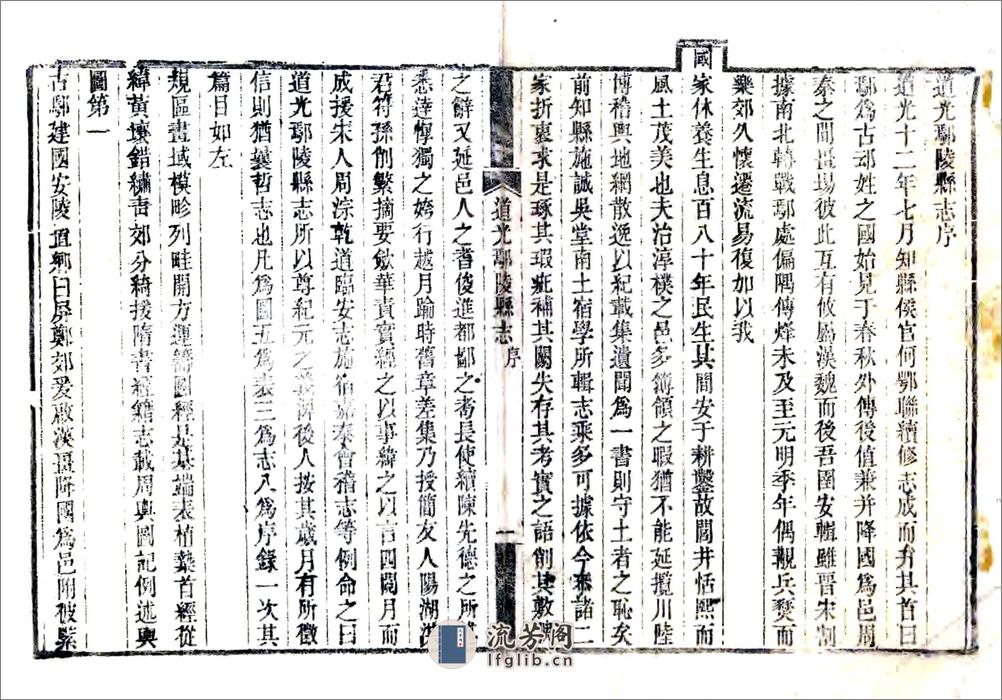 道光鄢陵縣志序
道光十二年七月知縣侯官何鄂聯續修志成而弁其首曰
鄢爲古妘姓之國始見于春秋外傳後值兼并降國爲邑周
秦之間畺埸彼此互有攸屬漢魏而後吾圉安輯雖晉宋割
據南北轉戰鄢處偏隅傳烽未及至元明季年偶覯兵燹而
樂郊久懷遷流易復加以我
國家休養生息百八十年民生其間安于耕鑿故閭井恬熙而
風土茂美也夫治淳樸之邑多簿領之暇猶不能延攬川陸
博稽輿地網散逸以紀載集遺聞爲一書則守土者之恥矣
前知縣施誠吳堂南土宿學所輯志乘多可據依今來諸二
家折衷求是琢其瑕疵補其闕失存其考實之語削其敷
道光鄢陵縣志 序 一
之辭又延邑人之耆俊進都鄙之耇長使續陳先德之所
悉達惸獨之姱行越月踰時舊章差集乃授簡友人陽湖洪
君符孫創繁摘要斂華責實經之以事緯之以言四閱月而
成援宋人周淙乾道臨安志施宿嘉泰會稽志等例命之曰
道光鄢陵縣志所以尊紀元之 後人按其歲月有所徵
信則猶曩哲志也凡爲圖五爲表三爲志八爲序錄一次其
篇目如左
規區畫域模畛列畦開方運籌圖經是基端表植藝首經從
緯黃壤錯繡靑郊分綺援隋書經籍志載周輿圖記例述輿
圖第一
古鄢建國安陵置鄉曰屏鄭郊爰啟漢畺降國爲邑附被緊
流芳阁
lfglib.cn